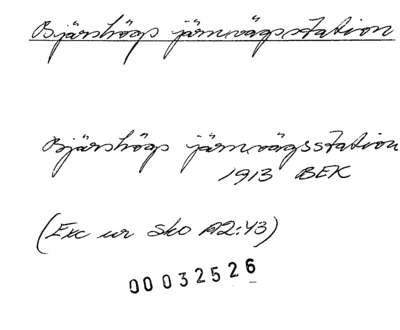 Bjärshögs järnvägsstation
Bjärshögs järnvägsstation
1913 BEK
(Exc ur Sko A2:43)
00032526